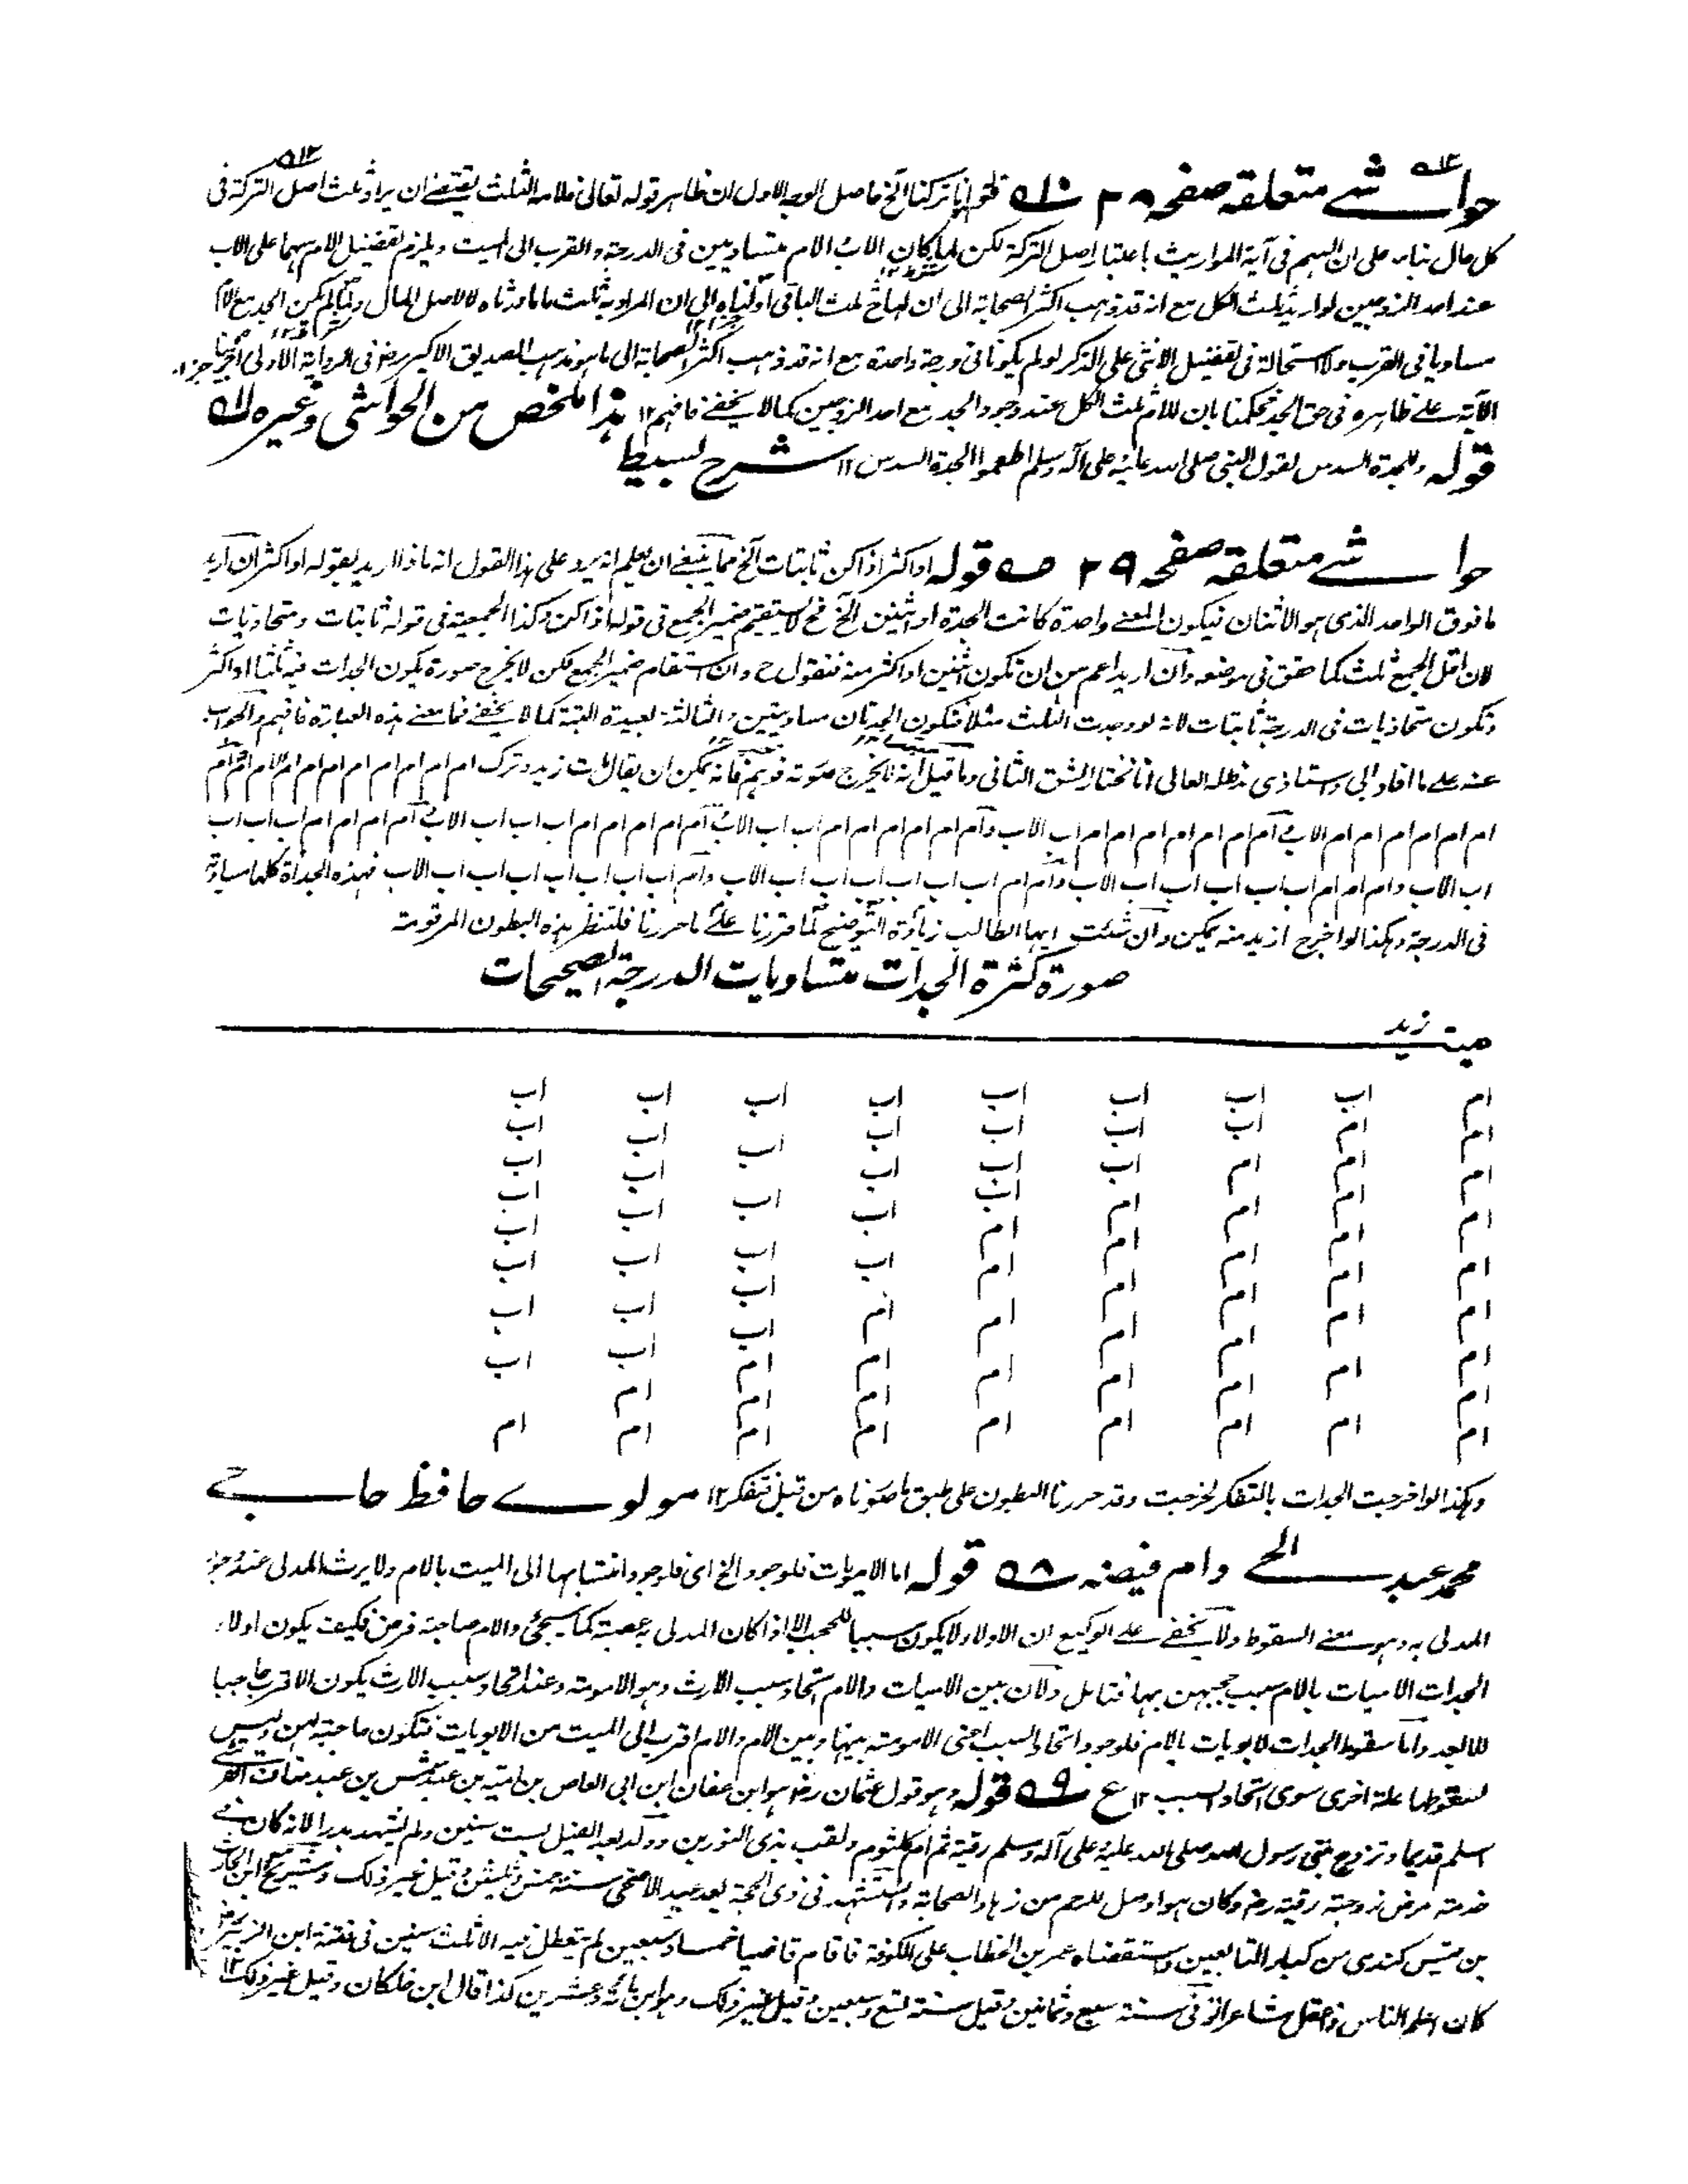 حواشے متعلقہ صفحہ ٢٨ قوله انا تركنا آلخ حاصل الوجه الاول ان ظاهر قوله تعالى فلامه الثلث يقتضے ان يراد ثلث اصل التركة فى
كل حال بناء على ان السهم فى آية المواريث باعتبار اصل التركة لكن لما كان الاب الام متساويين فى الدرجة والقرب الى الميت ويلزم تفضيل الام سهما على الاب
عند احد الزوجين لو اريد ثلث الكل مع انه قد ذهب اكثر الصحابة الى ان لها ثلث الباقى اولناه الى ان المراد به ثلث ما ورثاه لا لاصل المال ولما لم يكن الجد مع الام
مساويا فى القرب ولا استحالة فى تفضيل الانثى على الذكر لو لم يكونا فى درجة واحدة مع انه قد ذهب اكثر الصحابة الى ما هو مذهب الصديق الاكبر رض فى الرواية الاولى
الآية على ظاهره فى حق الجد فحكمنا بان للام ثلث الكل عند وجود الجد مع احد الزوجين كما لا يخفے فافهم ١٢ هذا ملخص من الحواشى وغيره
قوله وللجدة السدس لقول النبى صلى الله عليه وعلى آله وسلم اطعموا الجدة السدس ١٢ شرح بسيط
حواشے متعلقہ صفحہ ٢٩ قوله او اكثر اذا كن ثابتات آلخ مما ينبغے ان يعلم انه يرد على هذا القول انه ماذا اريد بقوله او اكثر ان اريد
ما فوق الواحد الذى هو الاثنان فيكون المعنے واحدة كانت الجدة او اثنين آلخ فح لا يستقيم ضمير الجمع فى قوله اذا كن وكذا الجمعية فى قوله ثابتات ومتحاذيات
لان اقل الجمع ثلث كما حقق فى موضعه وان اريد اعم من ان تكون اثنين او اكثر منه فنقول ح وان استقام ضمير الجمع لكن لا يخرج صورة يكون الجدات فيه ثلثا او اكثر
وتكون متحاذيات فى الدرجة ثابتات لانه لو وجدت الثلث مثلا فتكون الجدتان مساويتين والثالثة بعيدة البتة كما لا يخفے فما معنے هذه العبارة فافهم والجواب
عنه على ما افاد ابى واستاذى مد ظله العالى انا نختار الشق الثانى وما قيل انه لا يخرج صورته فوهم فانه يمكن ان يقال مات زيد وترك ام ام ام ام ام ام ام ام ام
ام ام ام ام ام ام ام الاب ام ام ام ام ام ام ام اب الاب وام ام ام ام ام ام اب اب الاب
اب الاب وام ام ام ام اب اب اب اب اب الاب وام ام ام اب اب اب اب اب اب الاب وام اب اب اب اب اب اب اب الاب فهذه الجداة كلها مساوية
فى الدرجة وهكذا لو اخرج ازيد منه يمكن وان شئت ايها الطالب زيادة التوضيح لما قررنا على ما حررنا فلتنظر هذه البطون المرقومة
صورة كثرة الجدات متساويات الدرجة الصحيحات
ميت زيد
ام اب اب اب اب اب اب اب اب
ام ام اب اب اب اب اب اب اب
ام ام ام اب اب اب اب اب اب
ام ام ام ام اب اب اب اب اب
ام ام ام ام ام اب اب اب اب
ام ام ام ام ام ام اب اب اب
ام ام ام ام ام ام اب اب اب
ام ام ام ام ام ام ام ام اب
ام ام ام ام ام ام ام ام ام
وهكذا لو اخرجت الجدات بالتفكر لخرجت وقد حررنا البطون على طبق ما صورناه من قبل فتفكر ١٢ مولوے حافظ حاجے
محمد عبد الحے دام فيضه قوله اما الاميات فلوجود الخ اى فلوجود انتسابها الى الميت بالام ولا يرث المدلى عند وجود
المدلى به وهو معنے السقوط ولا يخفے على الوكيع ان الاولاد لا يكون سببا للحجب الا اذا كان المدلى به عصبة كما سيجئ والام صاحبة فرض فكيف يكون اولاء
الجدات الاميات بالام سبب حجبهن بها فتامل ولان بين الاميات والام اتحاد سبب الارث وهو الامومة وعند اتحاد سبب الارث يكون الاقرب حاجبا
للابعد واما سقوط الجدات لابويات بالام فلوجود اتحاد السبب اعنى الامومة بينها وبين الام والام اقرب الى الميت من الابويات فتكون حاجبة لهن وليس
لسقوطها علة اخرى سوى اتحاد السبب ١٢ ع قوله وهو قول عثمان رض هو ابن عفان ابن ابى العاص بن امية بن عبد شمس بن عبد مناف
اسلم قديما وتزوج بنتى رسول الله صلى الله عليه وعلى آله وسلم رقية ثم ام كلثوم ولقب بذى النورين وولد بعد الفيل بست سنين ولم يشهد بدرا لانه كان فى
خدمة مرض زوجته رقية رض وكان هو اوصل للرحم من زهاد الصحابة واستشهد فى ذى الحجة بعد عيد الاضحى سنة خمس وثلثين وقيل غير ذلك وشريح ابن الحارث
بن قيس كندى من كبار التابعين واستقضاه عمر بن الخطاب على الكوفة فاقام قاضيا خمسا وسبعين لم يتعطل فيه الا ثلث سنين فى فتنة ابن الزبير
كان اعلم الناس ذا عقل شاعرا توفى سنة سبع وثمانين وقيل سنة تسع وسبعين وقيل غير ذلك وهو ابن مائة وعشرين كذا قال ابن خلكان وقيل غير ذلك ١٢